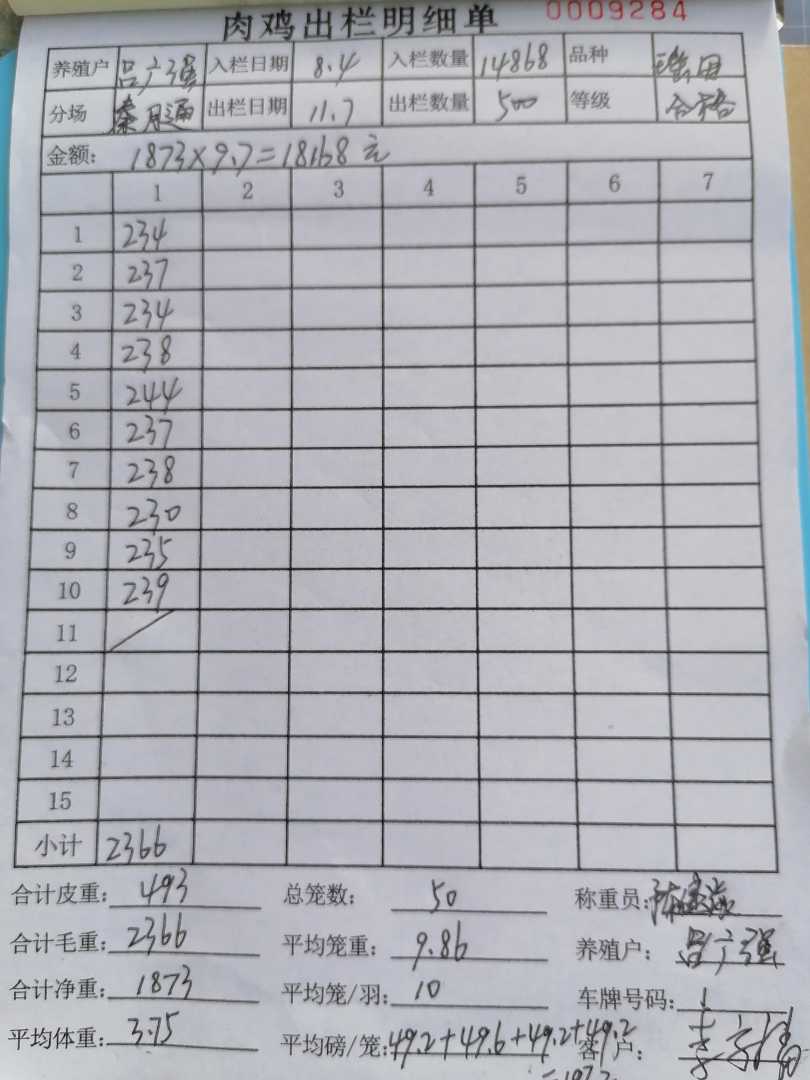 肉鸡出栏明细单 0009284
养殖户 吕广强 入栏日期 8.4 入栏数量 14868 品种
分场 秦通 出栏日期 11.7 出栏数量 500 等级 合格
金额: 1873×9.7=18168元
1 2 3 4 5 6 7
1 234
2 237
3 234
4 238
5 244
6 237
7 238
8 230
9 235
10 239
11
12
13
14
15
小计 2366
合计皮重: 493 总笼数: 50 称重员:
合计毛重: 2366 平均笼重: 9.86 养殖户: 吕广强
合计净重: 1873 平均笼/羽: 10 车牌号码:
平均体重: 3.75 平均磅/笼: 49.2+49.6+49.2+49.2 客户: